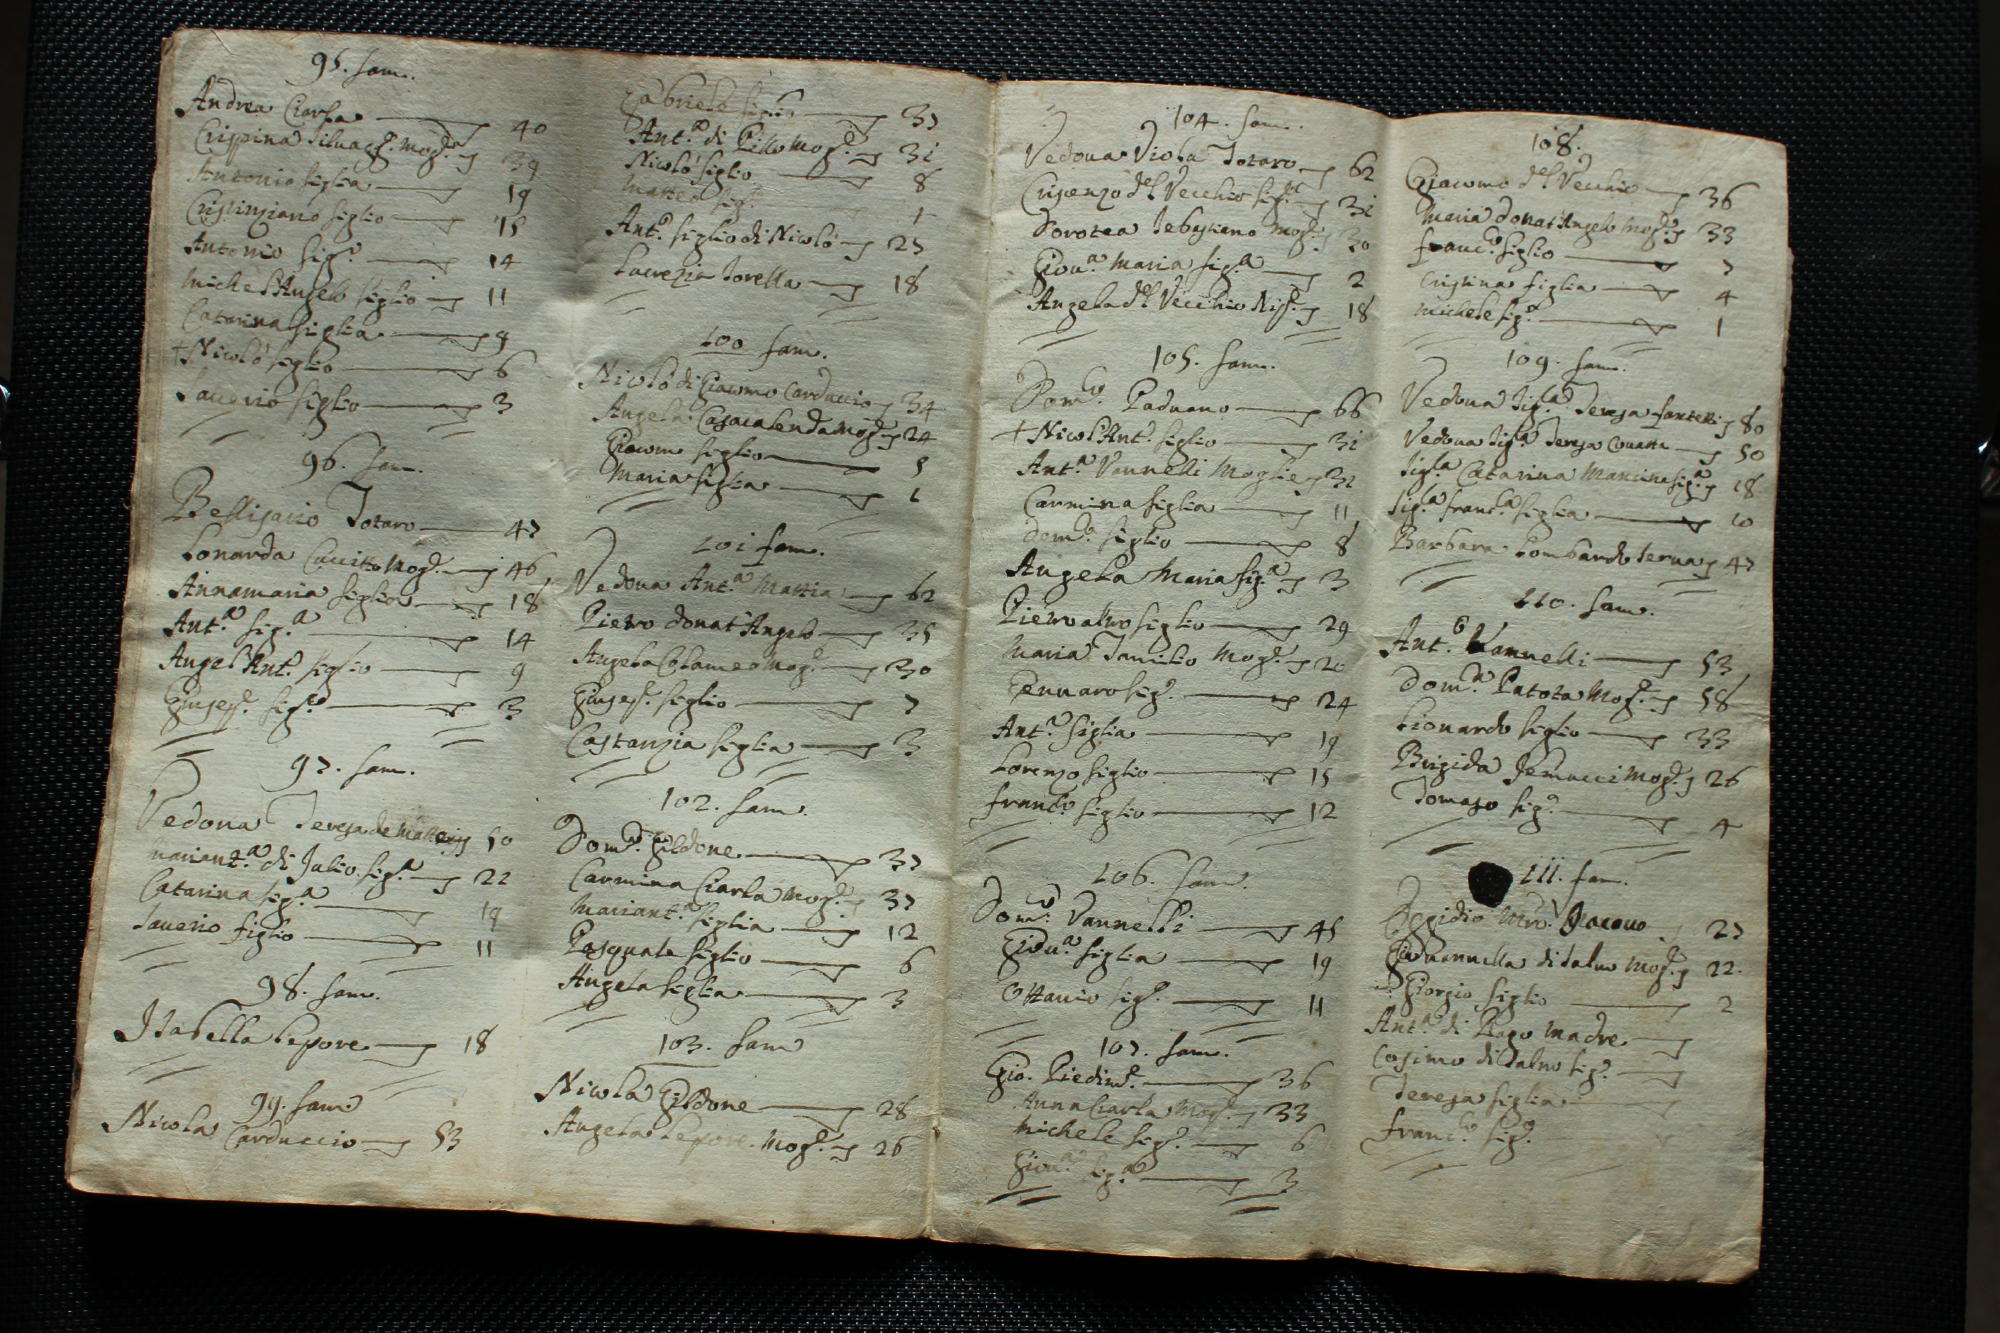 95. fam.
Andrea Ciarla 40
Crispina Silvag.ª Mog.e 39
Antonia figlia 19
Crispiniano figlio 15
Antonio fig.o 14
Michel'Angelo figlio 11
Catarina figlia 9
+ Nicolò figlio 6
Saverio figlio 3
96. fam.
Bellisario Totaro 47
Lonarda Mog.e 46
Annamaria figlia 18
Ant.a fig.a 14
Angel'Ant.o figlio 9
Giusep.e fig.o 3
97. fam.
Vedova Teresa de Matteis 50
Mariant.a di Julio fig.a 22
Catarina fig.a 19
Saverio figlio 11
98. fam.
Isabella Lepore 18
99. fam.
Nicola Carduccio 53
Gabriele figlio 37
Ant.a di Pillo Mog.e 31
Nicolò figlio 8
Matteo fig.o 1
Ant.o figlio di Nicolò 27
Lucrezia Iorella 18
100 fam.
Nicolò di Giacomo Carduccio 34
Angela Casacalenda Mog.e 24
Giacomo figlio 5
Maria figlia 1
101 fam.
Vedova Ant.a Mattia 62
Pietro Donat'Angelo 35
Angela Colameo Mog.e 30
Giusep.e figlio 7
Costanzia figlia 3
102. fam.
Dom.co Gildone 37
Carmina Ciarla Mog.e 37
Mariant.a figlia 12
Pasquale figlio 6
Angela figlia 3
103. fam.
Nicola Gildone 28
Angela Lepore Mog.e 26
104. fam.
Vedova Viola Totaro 62
Crisenzo del Vecchio fig.o 31
Dorotea Sebastiano Mog.e 30
Giov.a Maria fig.a 2
Angela del Vecchio Nip.e 18
105. fam.
Dom.co Paduano 66
+ Nicol'Ant.o figlio 31
Ant.a Vannelli Moglie 31
Carmina figlia 11
Dom.co figlio 8
Angela Maria fig.a 3
Pietro altro figlio 29
Maria Mog.e 20
Gennaro fig.o 24
Ant.a figlia 19
Lorenzo figlio 15
Franc.o figlio 12
106. fam.
Dom.co Vannelli 45
Giov.a figlia 19
Ottavio fig.o 11
107. fam.
Gio. Piedim.e 36
Anna Ciarla Mog.e 33
Michele fig.o 6
Giov.a fig.a 3
108.
Giacomo del Vecchio 36
Maria Donat'Angelo Mog.e 33
Franc.o figlio 7
Cristina figlia 4
Michele fig.o 1
109. fam.
Vedova Sig.a Teresa Fantelli 80
Vedova Sig.a Teresa 50
Sig.a Catarina Mancina fig.a 18
Sig.a Franc.a figlia 10
Barbara Lombardo serva 47
110. fam.
Ant.o Vannelli 53
Dom.a Patota Mog.e 58
Lionardo figlio 33
Brigida Mog.e 26
Tomaso fig.o 4
111. fam.
Egidio 27
Giovannella di Salvo Mog.e 22.
Giorgio figlio 2
Ant.a di Rago Madre
Cosimo di Salvo fig.o
Teresa figlia
Franc.o fig.o